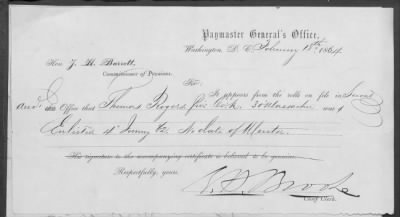 Paymaster General's Office,
Washington, D. C. February 18th 1864
Hon. J. H. Barrett,
Commissioner of Pensions.
Sir:
It appears from the rolls on file in Second
and this Office that Thomas Rogers 30 was
Enlisted No date of Muster
His signature to the accompanying certificate is believed to be genuine.
Respectfully, yours,
Chief Clerk.